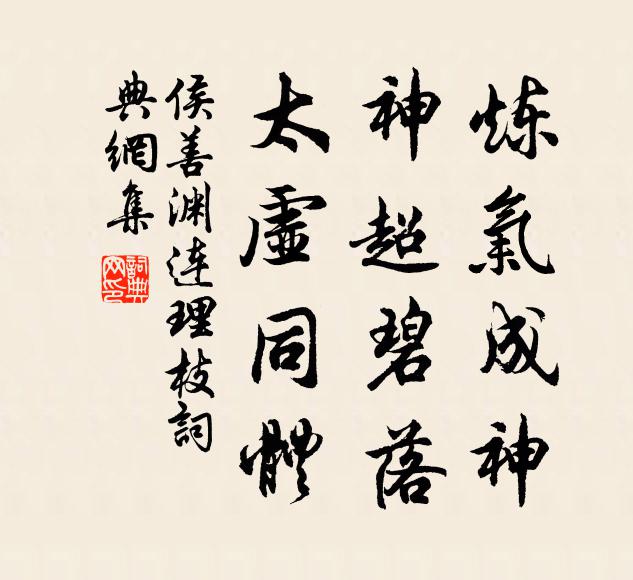 炼氣成神
神超碧落
太虛同體
侯善渊连理枝詞
典網集
詞典
网印